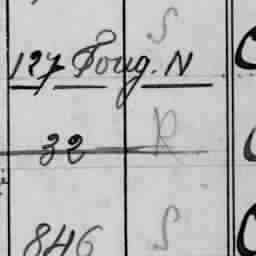 S
127 Poug. N
32 R
846 S